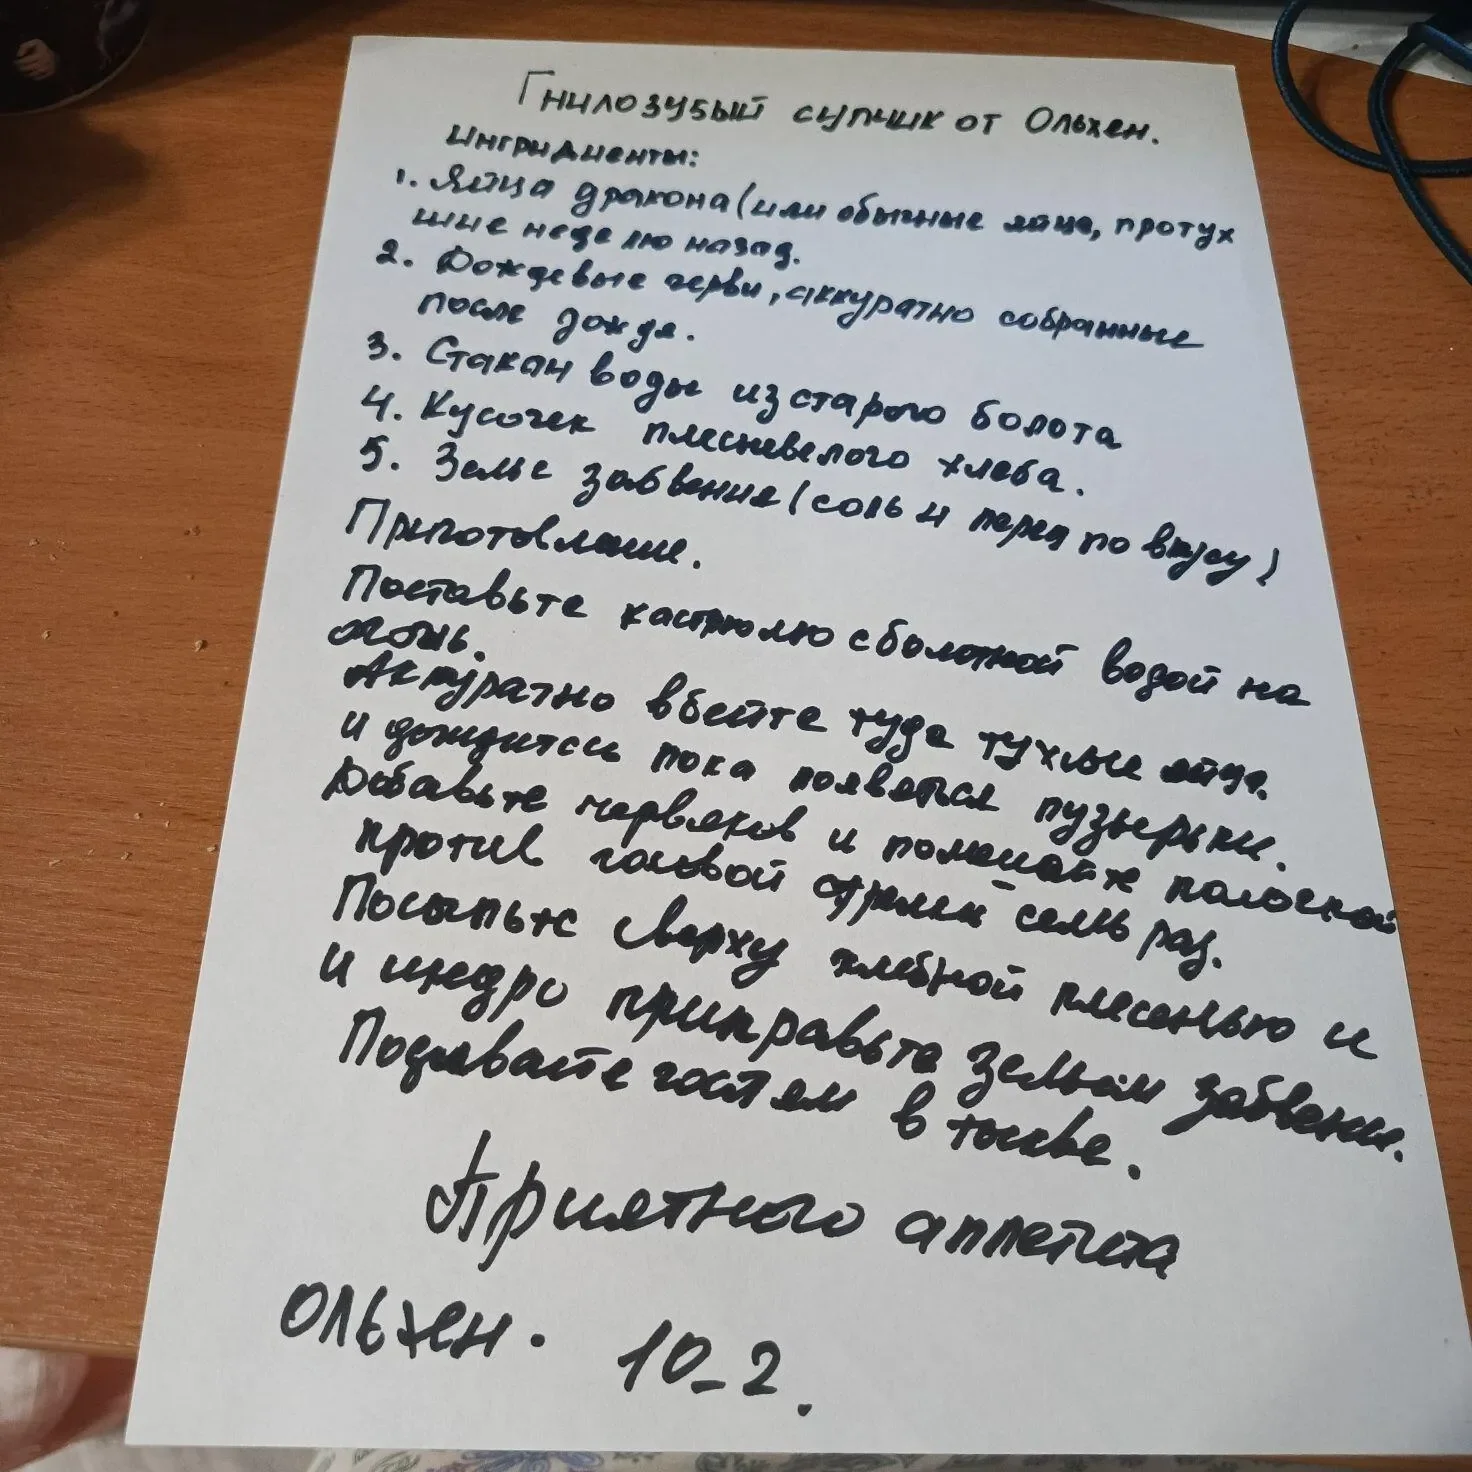 Гнилозубый супчик от Ольхен.
Ингридиенты:
1. Яйца дракона (или обычные яйца, протух
шие неделю назад.
2. Дождевые черви, аккуратно собранные
после дождя.
3. Стакан воды из старого болота
4. Кусочек плесневелого хлеба.
5. Зелье забвения (соль и перец по вкусу)
Приготовление.
Поставьте кастрюлю с болотной водой на
огонь.
Аккуратно вбейте туда тухлые яйца.
и дождитесь пока появятся пузырьки.
Добавьте червяков и помешайте палочкой
против часовой стрелки семь раз.
Посыпьте сверху хлебной плесенью и
и щедро приправьте зельем забвения.
Подавайте гостям в тыкве.
Приятного аппетита
Ольхен. 10_2.